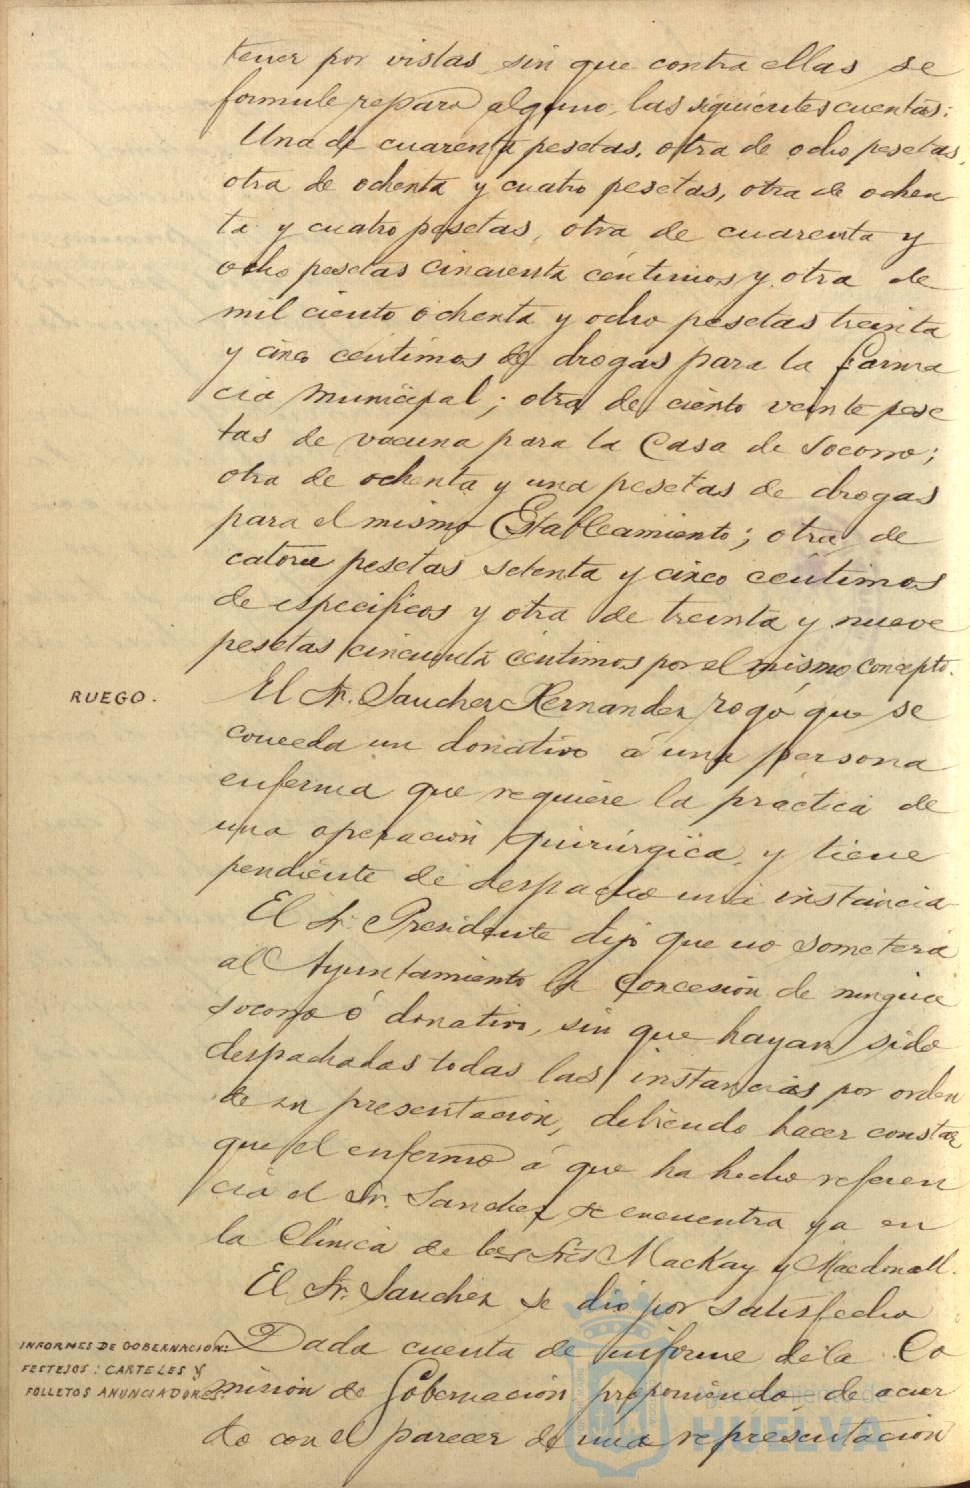 tener por vistas, sin que contra ellas se
formule reparo alguno, las siguientes cuentas:
Una de cuarenta pesetas, otra de ocho pesetas,
otra de ochenta y cuatro pesetas, otra de ochen
ta y cuatro pesetas, otra de cuarenta y
ocho pesetas cincuenta céntimos y otra de
mil ciento ochenta y ocho pesetas treinta
y cinco centimos de drogas para la Farma
cia Municipal; otra de ciento veinte pese
tas de vacuna para la Casa de Socorro;
otra de ochenta y una pesetas de drogas
para el mismo Establecimiento; otra de
catorce pesetas setenta y cinco centimos
de especificos y otra de treinta y nueve
pesetas cincuenta céntimos por el mismo concepto.
RUEGO.
El Sr. Sanchez Hernandez rogó que se
conceda un donativo á una persona
enferma que requiere la práctica de
una operación quirúrgica, y tiene
pendiente de despacho una instancia
El Sr. Presidente dijo que no someterá
al Ayuntamiento la concesión de ningun
socorro ó donativo, sin que hayan sido
despachadas todas las instancias por orden
de su presentación, debiendo hacer constar
que el enfermo á que ha hecho referen
cia el Sr. Sanchez se encuentra ya en
la Clínica de los Sres MacKay y Macdonall.
El Sr. Sanchez se dió por satisfecho
INFORMES DE GOBERNACION:
FESTEJOS: CARTELES Y
FOLLETOS ANUNCIADORES.
Dada cuenta de informe de la Co
misión de Gobernación proponiendo, de acuer
do con el parecer de una representación
Ayuntamiento de
HUELVA